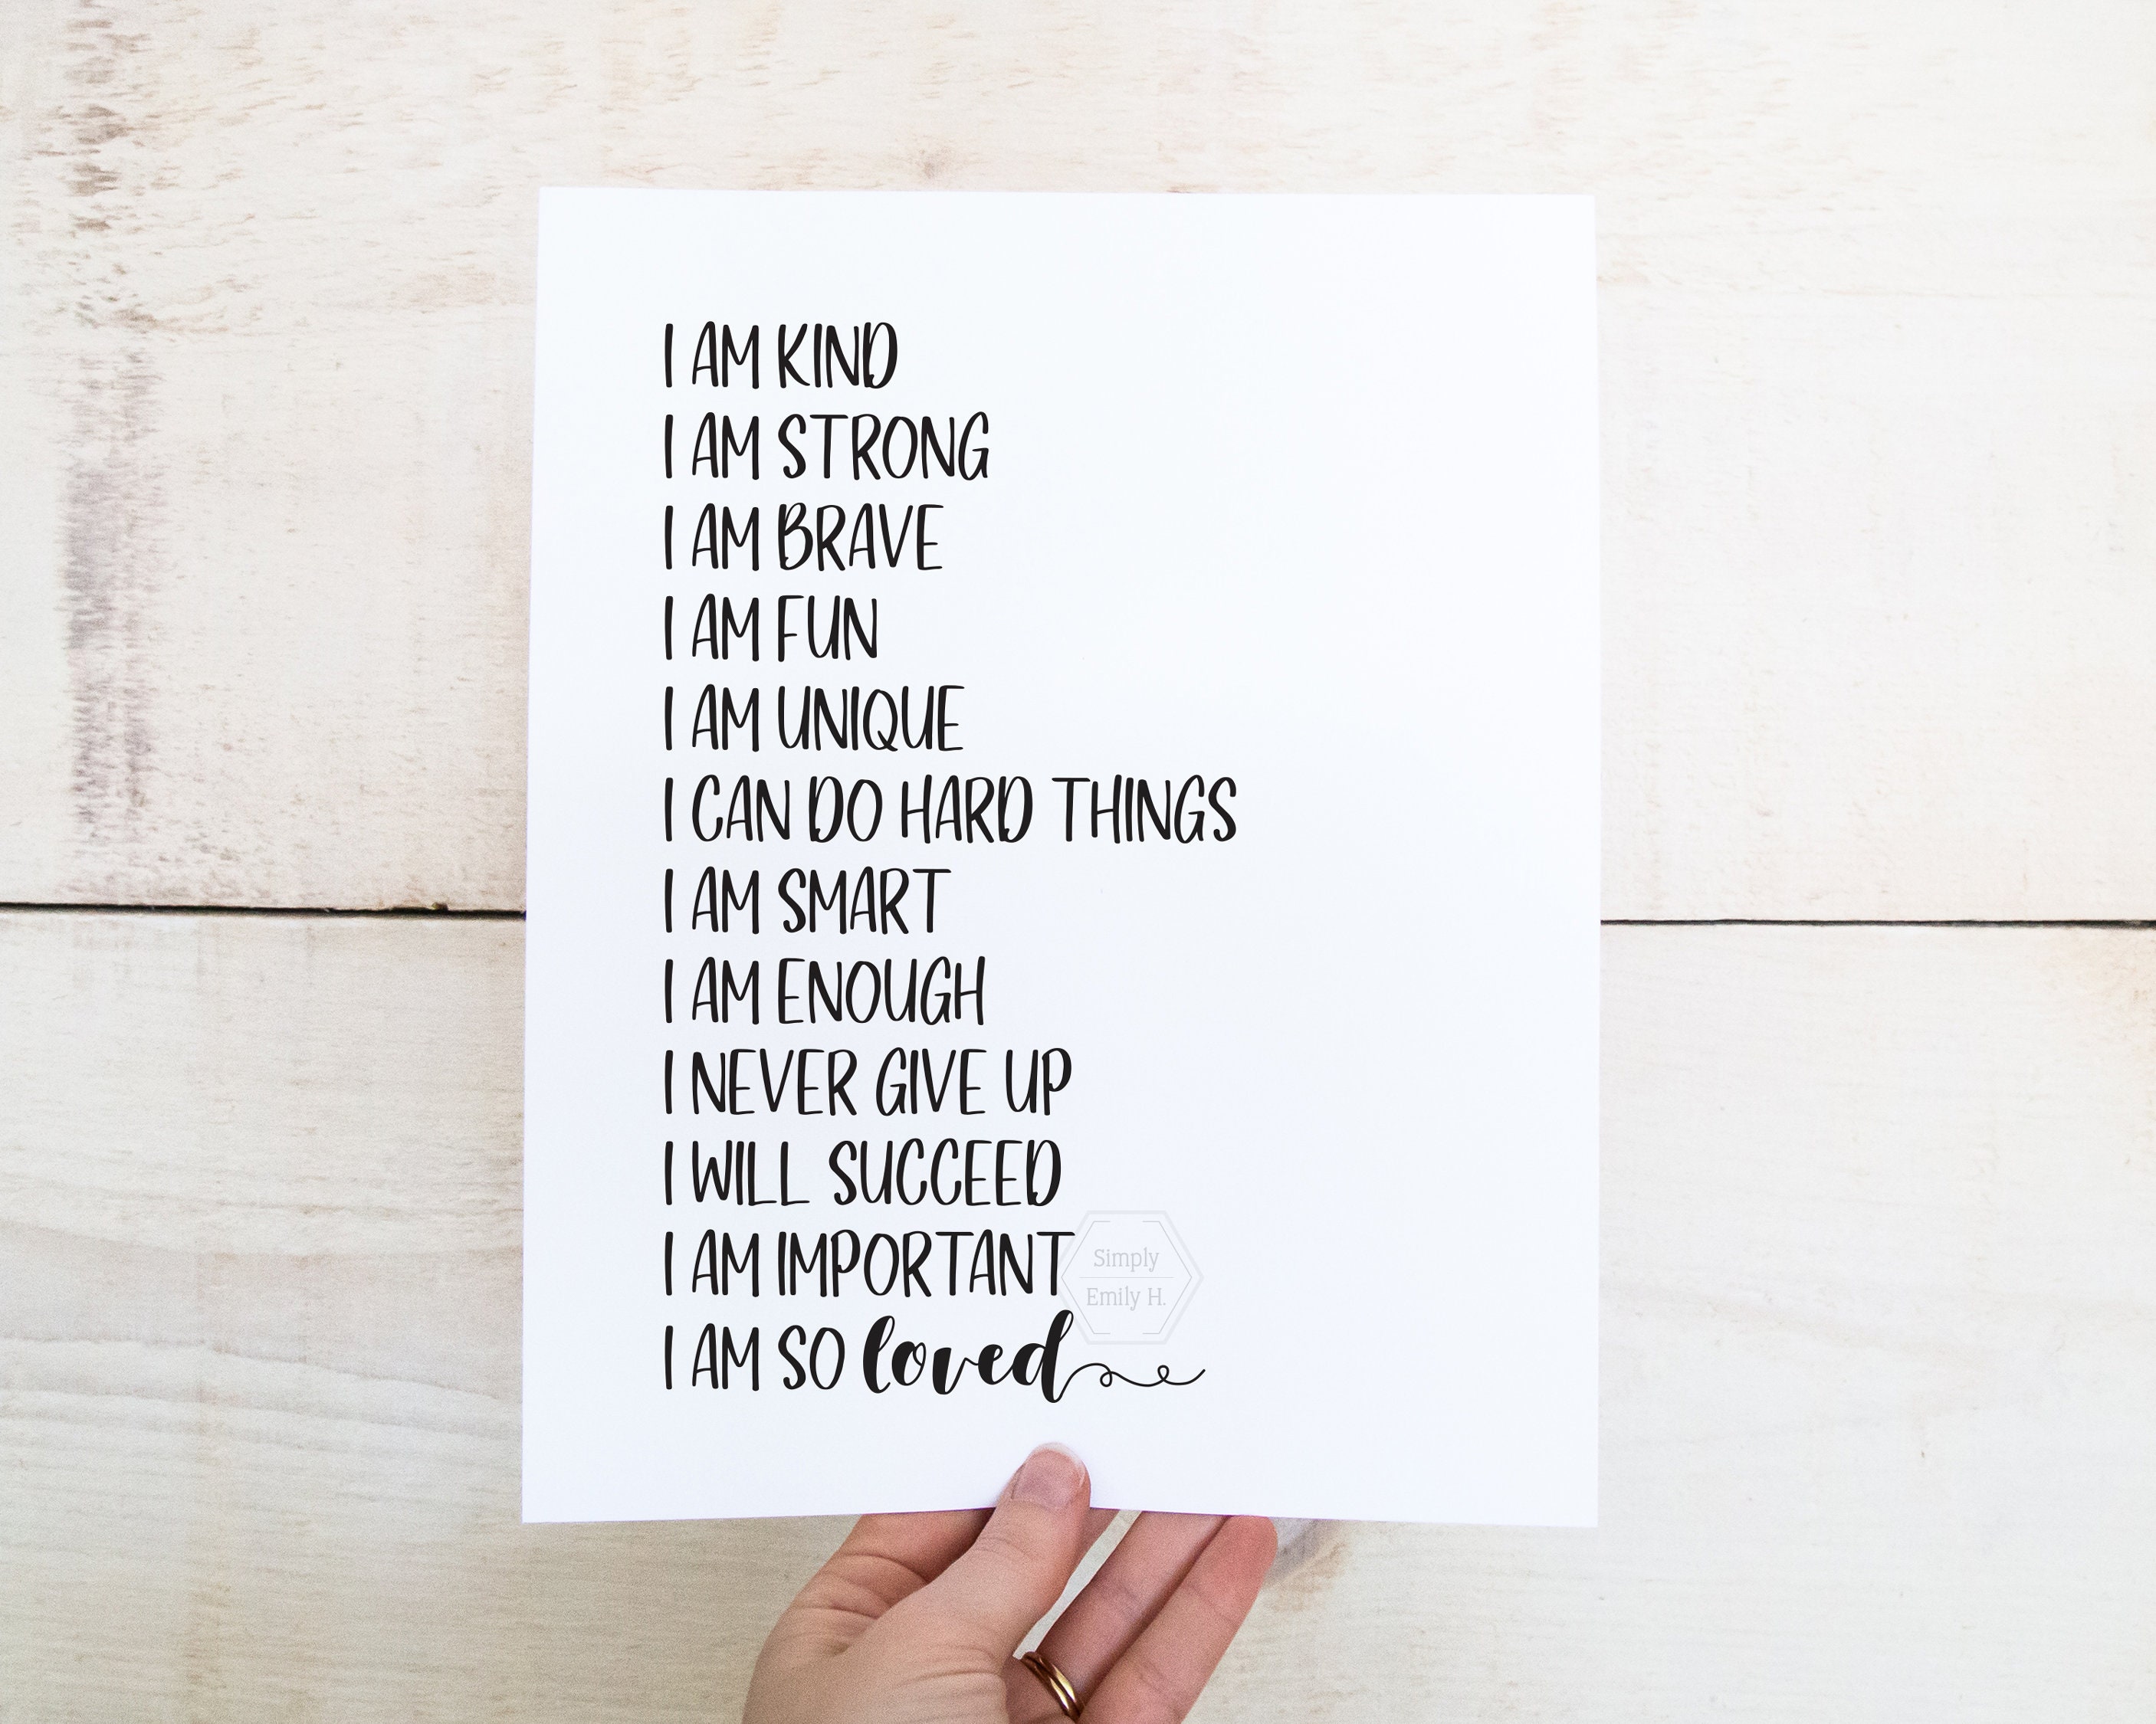 I AM KIND
I AM STRONG
I AM BRAVE
I AM FUN
I AM UNIQUE
I CAN DO HARD THINGS
I AM SMART
I AM ENOUGH
I NEVER GIVE UP
I WILL SUCCEED
I AM IMPORTANT
Simply
Emily H.
I AM SO loved